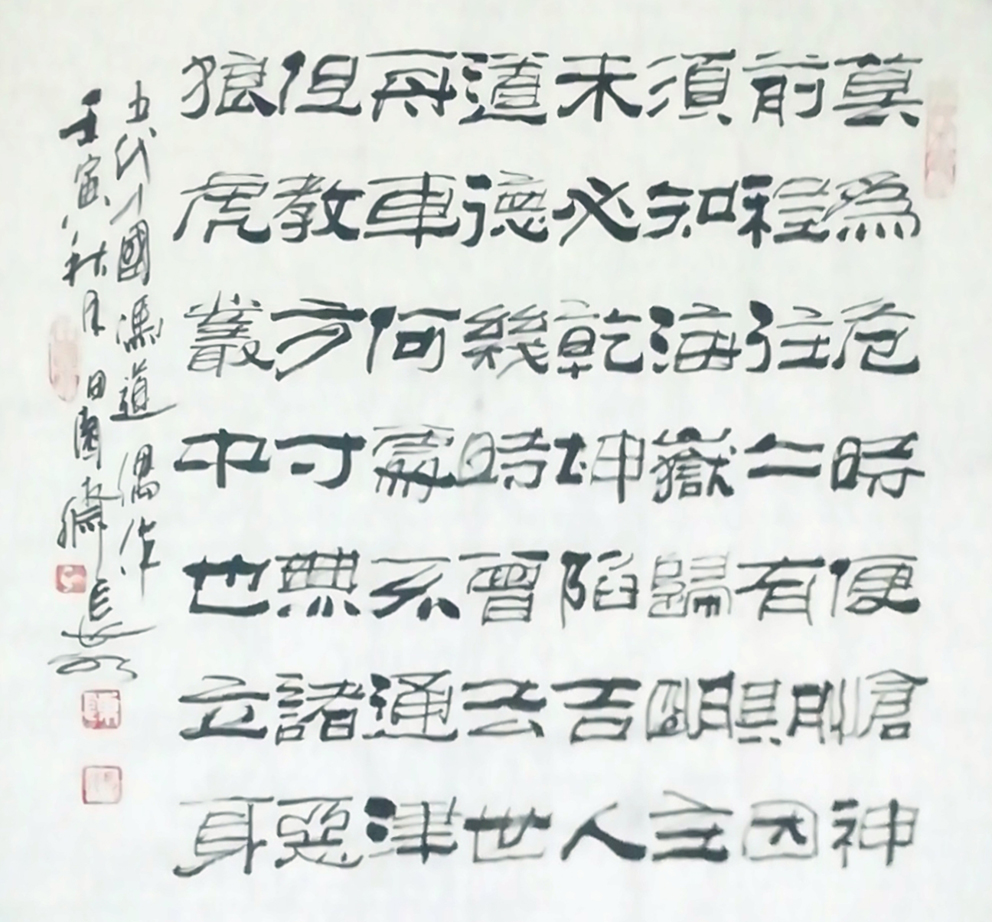 莫為危時便愴神
前程往々有期因
須知海嶽歸明主
未必乾坤陷吉人
道德幾時曾去世
舟車何處不通津
但教方寸無諸惡
狼虎叢中也立身
五代十國馮道偶作
壬寅秋月